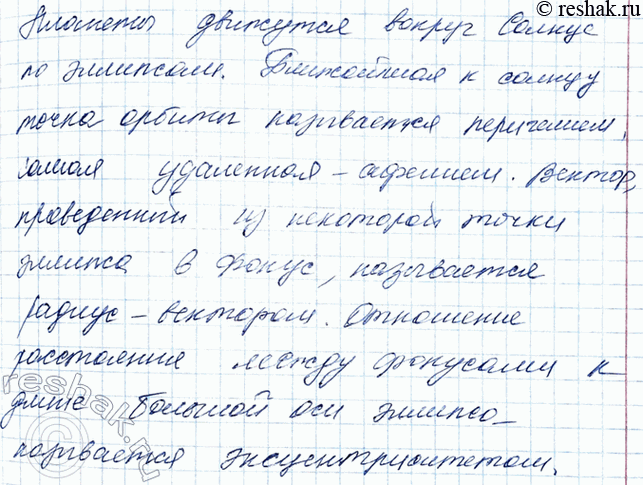 © reshak.ru
Планеты движутся вокруг Солнус
по эллипсам. Ближайшая к солнцу
точка орбиты называется перигелием,
самая удаленная – афелием. Вектор,
проведенный из некоторой точки
эллипса в фокус, называется
радиус – вектором. Отношение
расстояние между фокусами к
длине большой оси эллипса
называется эксцентриситетом.
© reshak.ru